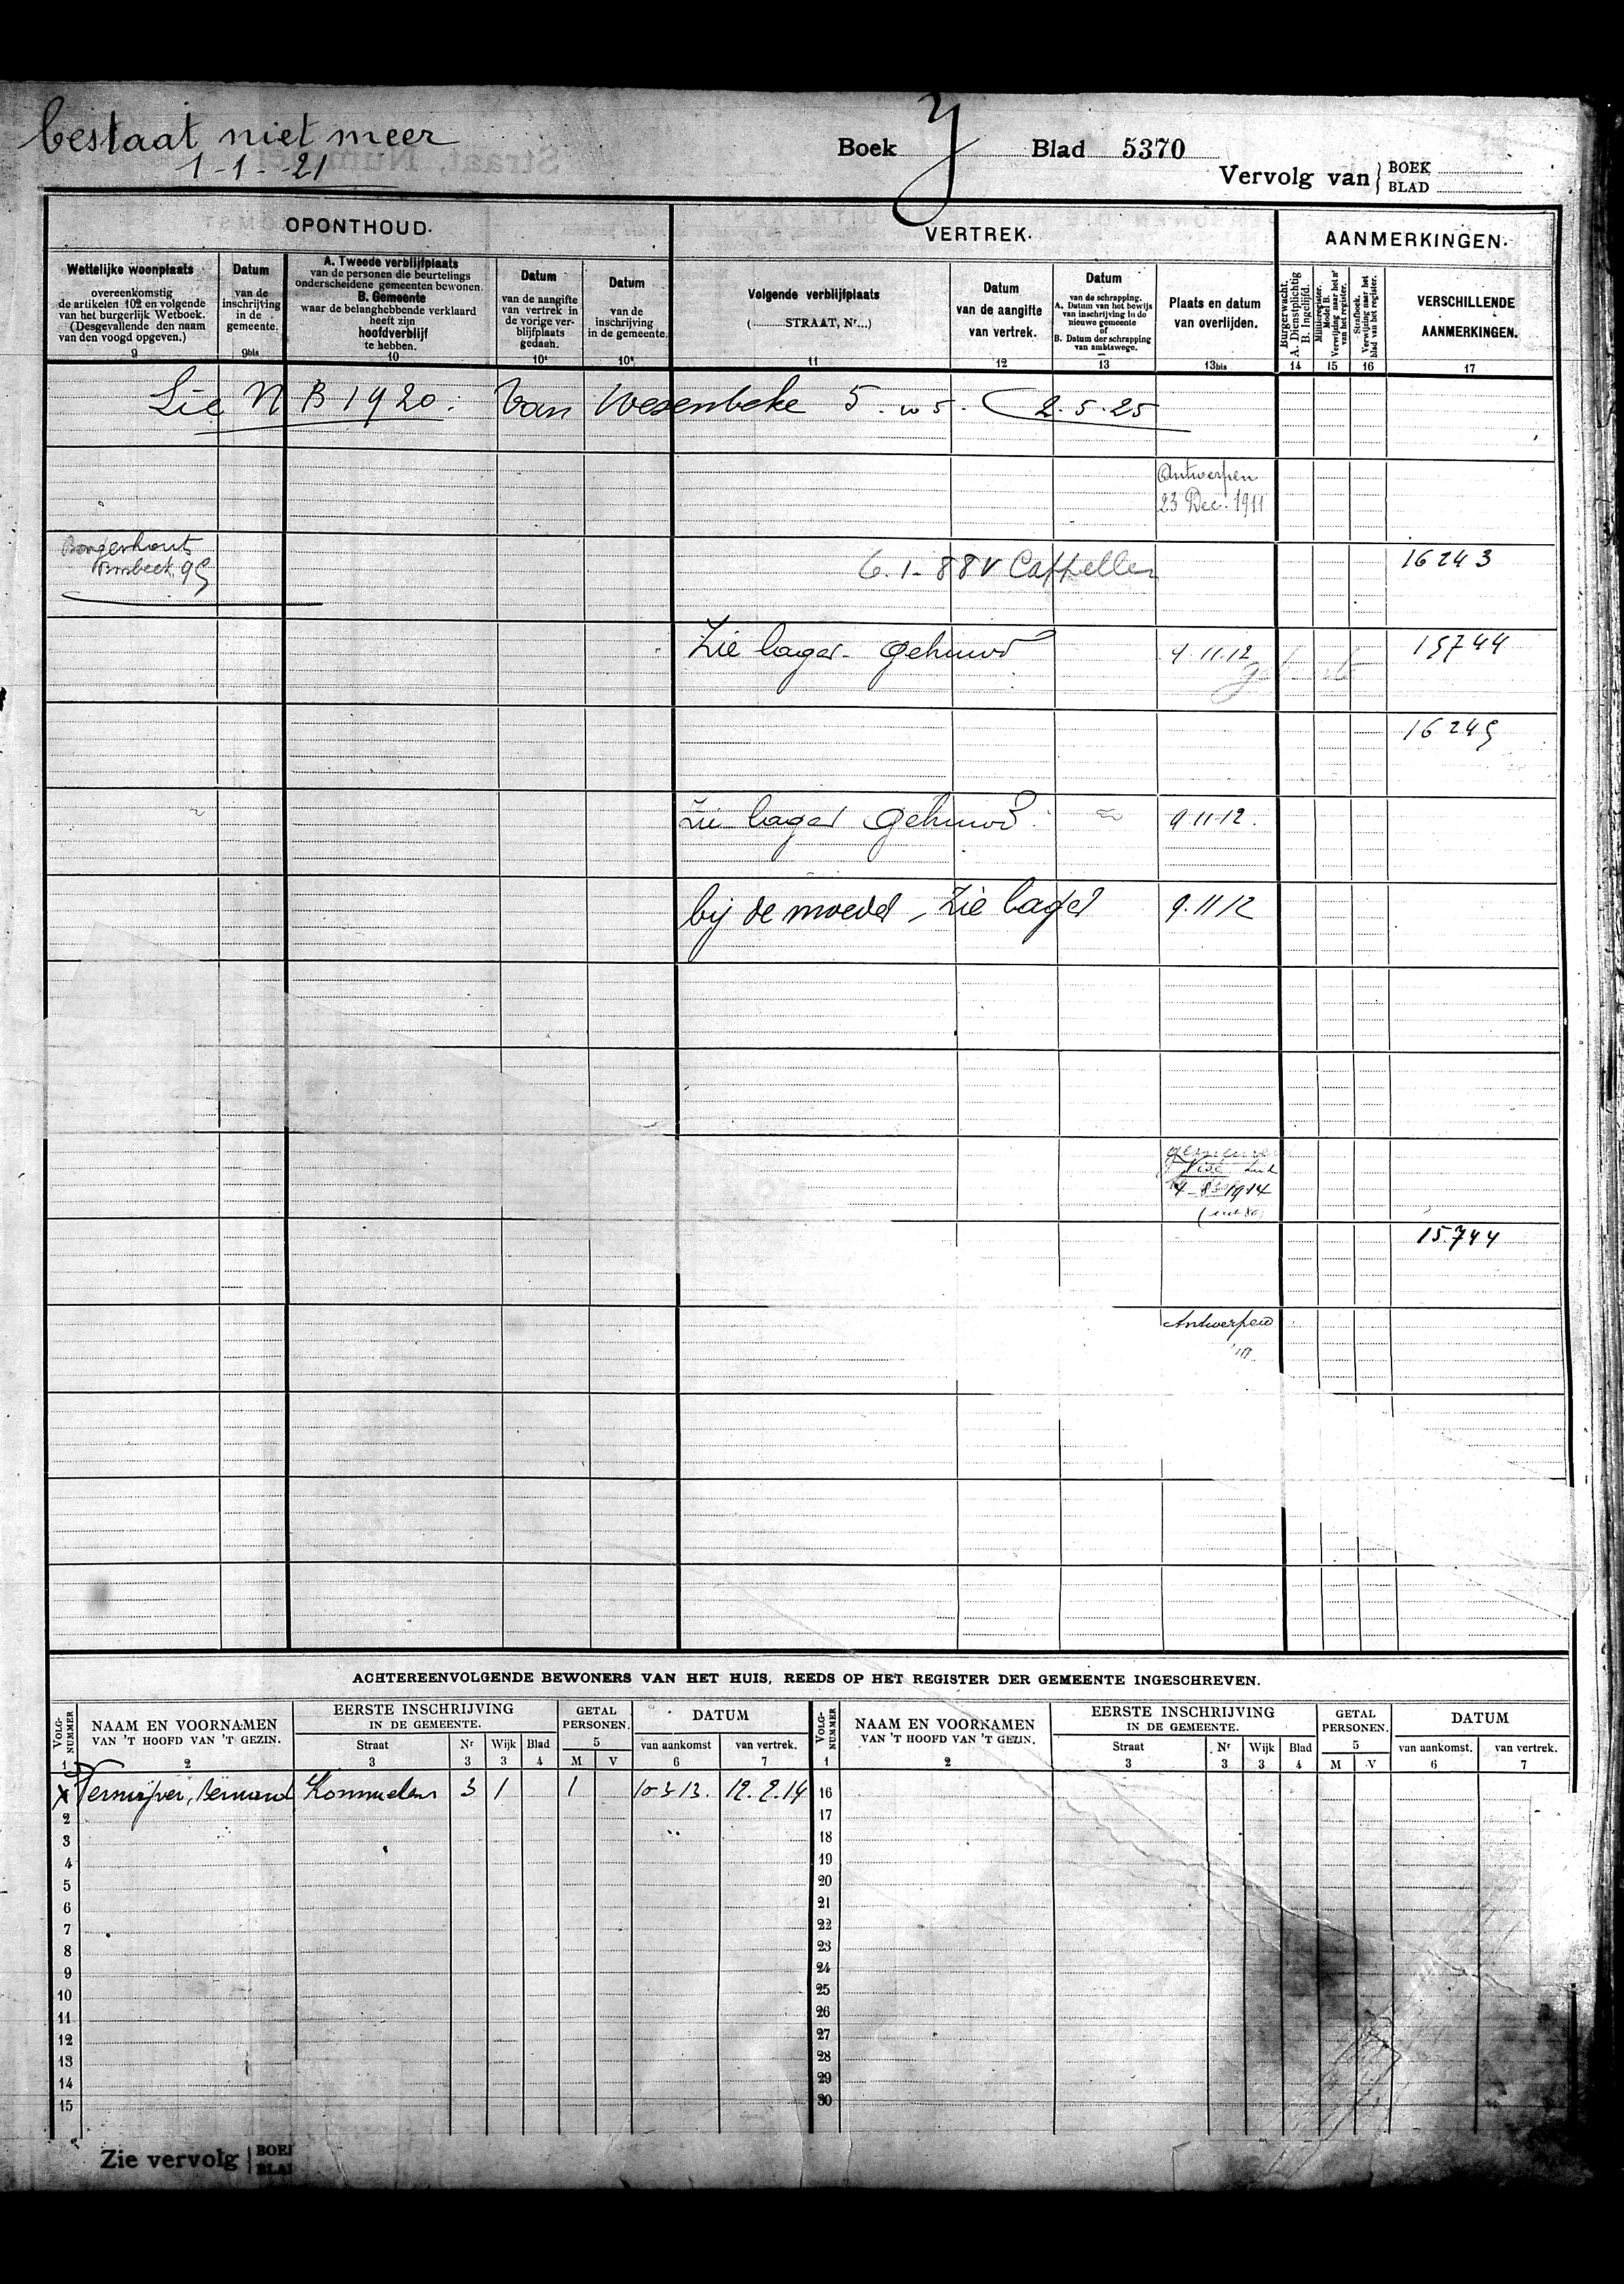 bestaat niet meer
1-1-21
Boek Y Blad 5370
Vervolg van BOEK
BLAD
OPONTHOUD.
VERTREK.
AANMERKINGEN.
Wettelijke woonplaats
overeenkomstig
de artikelen 102 en volgende
van het burgerlijk Wetboek.
(Desgevallende den naam
van den voogd opgeven.)
9
Datum
van de
inschrijving
in de
gemeente.
9bis
A. Tweede verblijfplaats
van de personen die beurtelings
onderscheidene gemeenten bewonen.
B. Gemeente
waar de belanghebbende verklaard
heeft zijn
hoofdverblijf
te hebben.
10
Datum
van de aangifte
van vertrek in
de vorige ver-
blijfplaats
gedaan.
10¹
Datum
van de
inschrijving
in de gemeente.
10²
Volgende verblijfplaats
(........STRAAT, Nr...)
11
Datum
van de aangifte
van vertrek.
12
Datum
van de schrapping.
A. Datum van het bewijs
van inschrijving in de
nieuwe gemeente
of
B. Datum der schrapping
van ambtswege.
13
Plaats en datum
van overlijden.
13bis
Burgerwacht.
A. Dienstplichtig
B. Ingelijfd.
14
Militieregister.
Model B.
Verwijzing naar het nr
van het register.
15
Strafboek.
Verwijzing naar het
blad van het register.
16
VERSCHILLENDE
AANMERKINGEN.
17
Zie N B 1920. Van Wesenbeke 5. w 5. 2.5.25
Antwerpen
23 Dec. 1911
Borgerhout
95
6.1-88 V Cappellen
16243
Zie lager gehuwd 9.11.12 15744
16245
Zie lager gehuwd 9.11.12.
bij de moeder - Zie lager 9.11.12
Visé
4-8-1914
15744
Antwerpen
ACHTEREENVOLGENDE BEWONERS VAN HET HUIS, REEDS OP HET REGISTER DER GEMEENTE INGESCHREVEN.
VOLG-
NUMMER
1
NAAM EN VOORNAMEN
VAN 'T HOOFD VAN 'T GEZIN.
2
EERSTE INSCHRIJVING
IN DE GEMEENTE.
Straat Nr Wijk Blad
3 3 3 4
GETAL
PERSONEN.
5
M V
DATUM
van aankomst van vertrek.
6 7
VOLG-
NUMMER
1
NAAM EN VOORNAMEN
VAN 'T HOOFD VAN 'T GEZIN.
2
EERSTE INSCHRIJVING
IN DE GEMEENTE.
Straat Nr Wijk Blad
3 3 3 4
GETAL
PERSONEN.
5
M V
DATUM
van aankomst. van vertrek.
6 7
3 1 1 10-3-13. 12.2.14 16
2 17
3 18
4 19
5 20
6 21
7 22
8 23
9 24
10 25
11 26
12 27
13 28
14 29
15 30
Zie vervolg